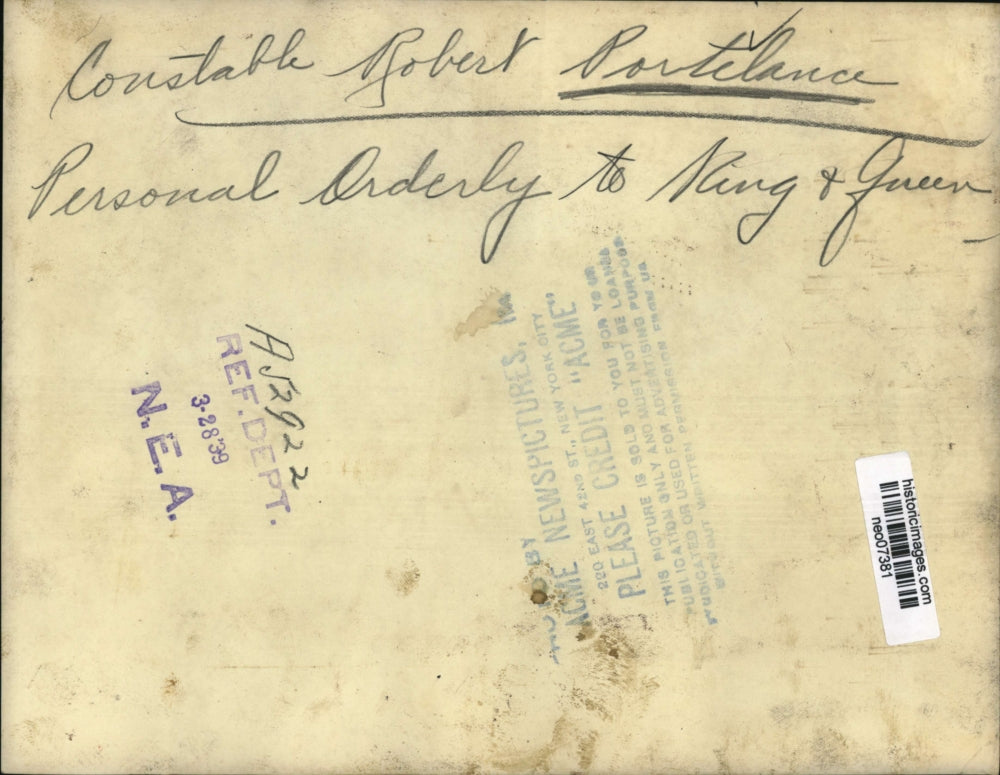 Constable Robert Portelance
Personal Orderly to King & Queen
A52922
REF. DEPT.
3-28-39
N.E.A.
BY
ACME NEWSPICTURES, IN
220 EAST 42ND ST., NEW YORK CITY
PLEASE CREDIT "ACME"
THIS PICTURE IS SOLD TO YOU FOR YOUR
PUBLICATION ONLY AND MUST NOT BE LOANED
SYNDICATED OR USED FOR ADVERTISING PURPOSE
WITHOUT WRITTEN PERMISSION FROM US
historicimages.com
neo07381